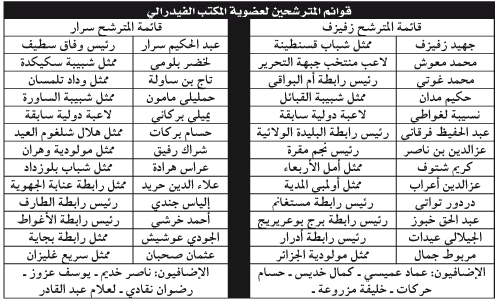 قوائم المترشحين لعضوية المكتب الفيدرالي
قائمة المترشح زفيزف
قائمة المترشح سرار
جهيد زفيزف ممثل شباب قسنطينة عبد الحكيم سرار رئيس وفاق سطيف
محمد معوش لاعب منتخب جبهة التحرير لخضر بلومي ممثل شبيبة سكيكدة
محمد غوتي رئيس رابطة أم البواقي تاج بن ساولة ممثل وداد تلمسان
حكيم مدان ممثل شبيبة القبائل حمليلي مامون ممثل شبيبة الساورة
نسيبة لغواطي لاعبة دولية سابقة يميلي بركاني لاعبة دولية سابقة
عبد الحفيظ فرقاني رئيس رابطة البليدة الولائية حسام بركات ممثل هلال شلغوم العيد
عزالدين بن ناصر رئيس نجم مقرة شراك رفيق ممثل مولودية وهران
كريم شتوف ممثل أمل الأربعاء عراس هرادة ممثل شباب بلوزداد
عزالدين أعراب ممثل أولمبي المدية علاء الدين حريد ممثل رابطة عنابة الجهوية
دردور تواتي رئيس رابطة مستغانم إلياس جندي رئيس رابطة الطارف
عبد الحق خبوز رئيس رابطة برج بوعريريج أحمد خرشي رئيس رابطة الأغواط
الجيلالي عيدات رئيس رابطة أدرار الجودي عوشيش ممثل رابطة بجاية
مربوط جمال ممثل مولودية الجزائر عثمان صحبان ممثل سريع غليزان
الإضافيون: عماد عميسي ـ كمال خديس ـ حسام
حركات ـ خليفة مزروعة ـ
الإضافيون: ناصر خديم ـ يوسف عزوز ـ
رضوان نقادي ـ لعلام عبد القادر